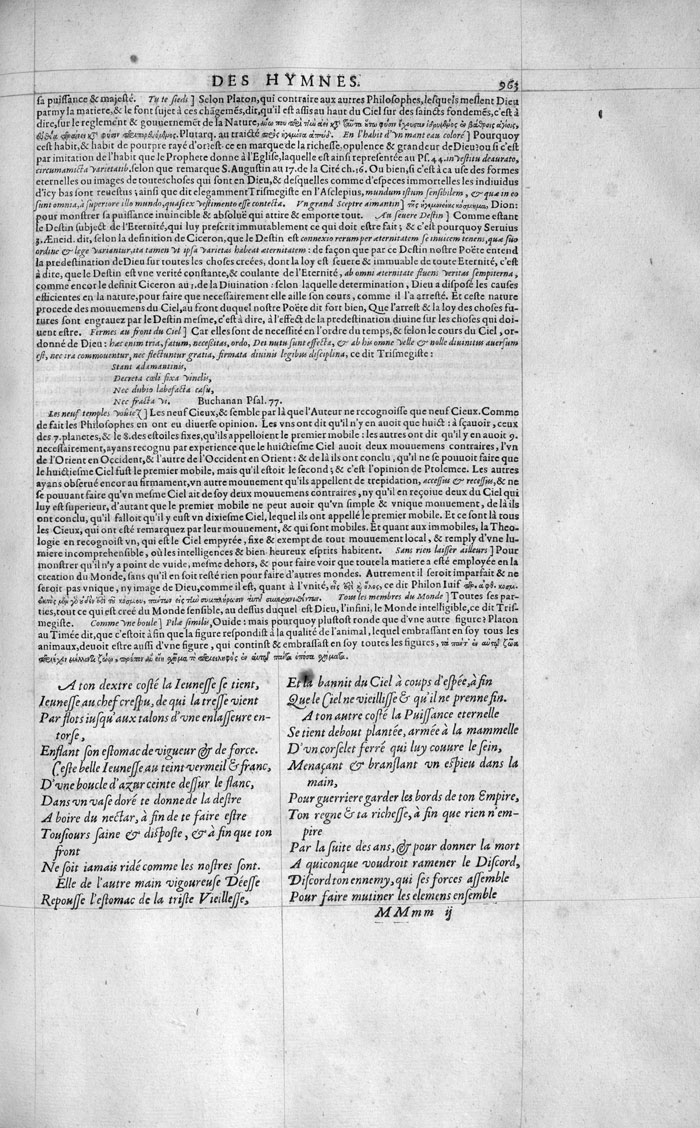 DES HYMNES. 963
sa puissance & majesté. Tu te sieds ] Selon Platon, qui contraire aux autres Philosophes, lesquels meslent Dieu
parmy la matiere, & le font sujet à ces chãgemẽs, dit, qu'il est assis au haut du Ciel sur des saincts fondemẽs, c'est à
dire, sur le reglement & gouvernemẽt de la Nature,
Plutarq. au traicté En l'habit d'vn manteau coloré ] Pourquoy
cest habit, & habit de pourpre rayé d'or? est-ce en marque de la richesse, opulence & grandeur de Dieu? ou si c'est
par imitation de l'habit que le Prophete donne à l'Eglise, laquelle est ainsi representée au Ps. 44. in vestitu deaurato,
circumamicta varietatib. selon que remarque S. Augustin au 17. de la Cité ch. 16. Ou bien, si c'est à ca use des formes
eternelles ou images de toutes choses qui sont en Dieu, & desquelles comme d'especes immortelles les indiuidus
d'icy bas sont reuestus; ainsi que dit elegamment Trismegiste en l'Asclepius, mundum istum sensibilem, & quæ in eo
sunt omnia, à superiore illo mundo, quasi ex vestimento esse contecta. V'n grand Sceptre aimantin ] Dion:
pour monstrer sa puissance inuincible & absoluë qui attire & emporte tout. Au seuere Destin ] Comme estant
le Destin subject de l'Eternité, qui luy prescrit immutablement ce qui doit estre fait; & c'est pourquoy Seruius
3. Æneid. dit, selon la definition de Ciceron, que le Destin est connexio rerum per æternitatem se inuicem tenens, quæ suo
ordine & lege variantur, ita tamen vt ipsa varietas habeat æternitatem: de façon que par ce Destin nostre Poëte entend
la predestination de Dieu sur toutes les choses creées, dont la loy est seuere & immuable de toute Eternité, c'est
à dire, que le Destin est vne verité constante, & coulante de l'Eternité, ab omni æternitate fluens veritas sempiterna,
comme encor le definit Ciceron au 1. de la Diuination: selon laquelle determination, Dieu a disposé les causes
efficientes en la nature, pour faire que necessairement elle aille son cours, comme il l'a arresté. Et ceste nature
procede des mouuemens du Ciel, au front duquel nostre Poëte dit fort bien, Que l'arrest & la loy des choses fu-
tures sont engrauez par le Destin mesme, c'est à dire, à l'effect de la predestination diuine sur les choses qui doi-
uent estre. Fermes au front du Ciel ] Car elles sont de necessité en l'ordre du temps, & selon le cours du Ciel, or-
donné de Dieu: hæc enim tria, fatum, necessitas, ordo, Dei nutu sunt effecta, & ab his omne velle & nolle diuinitus auersum
est, nec ira commouentur, nec flectuntur gratia, firmata diuinis legibus disciplina, ce dit Trismegiste:
Stant adamantinis,
Decreta cœli fixa vinclis,
Nec dubio labefacta casu,
Nec fracta vi. Buchanan Psal. 77.
Les neuf temples voûtez ] Les neuf Cieux, & semble par là que l'Auteur ne recognoisse que neuf Cieux. Comme
de fait les Philosophes en ont eu diuerse opinion. Les vns ont dit qu'il n'y en auoit que huict: à sçauoir, ceux
des 7. planetes, & le 8. des estoiles fixes, qu'ils appelloient le premier mobile: les autres ont dit qu'il y en auoit 9.
necessairement, ayans recognu par experience que le huictiesme Ciel auoit deux mouuemens contraires, l'vn
de l'Orient en Occident, & l'autre de l'Occident en Orient: & de là ils ont conclu, qu'il ne se pouuoit faire que
le huictiesme Ciel fust le premier mobile, mais qu'il estoit le second; & c'est l'opinion de Ptolemée. Les autres
ayans obserué encor au firmament, vn autre mouuement qu'ils appellent de trepidation, accessus & recessus, & ne
se pouuant faire qu'vn mesme Ciel ait de soy deux mouuemens contraires, ny qu'il en reçoiue deux du Ciel qui
luy est superieur, d'autant que le premier mobile ne peut auoir qu'vn simple & vnique mouuement, de là ils
ont conclu, qu'il falloit qu'il y eust vn dixiesme Ciel, lequel ils ont appellé le premier mobile. Et ce sont là tous
les Cieux, qui ont esté remarquez par leur mouuement, & qui sont mobiles. Et quant aux immobiles, la Theo-
logie en recognoist vn, qui est le Ciel empyrée, fixe & exempt de tout mouuement local, & remply d'vne lu-
miere incomprehensible, où les intelligences & bien heureux esprits habitent. Sans rien laisser ailleurs ] Pour
monstrer qu'il n'y a point de vuide, mesme dehors, & pour faire voir que toute la matiere a esté employée en la
creation du Monde, sans qu'il en soit resté rien pour faire d'autres mondes. Autrement il seroit imparfait & ne
seroit pas vnique, ny image de Dieu, comme il est, quant à l'vnité, ce dit Philon Iuif
Tous les membres du Monde ] Toutes ses par-
ties, tout ce qui est creé du Monde sensible, au dessus duquel est Dieu, l'infini, le Monde intelligible, ce dit Tris-
megiste. Comme vne boule ] Pilæ similis, Ouide: mais pourquoy plustost ronde que d'vne autre figure? Platon
au Timée dit, que c'estoit à fin que la figure respondist à la qualité de l'animal, lequel embrassant en soy tous les
animaux, deuoit estre aussi d'vne figure, qui continst & embrassast en soy toutes les figures,
A ton dextre costé la Ieunesse se tient,
Ieunesse au chef crespu, de qui la tresse vient
Par flots iusqu'aux talons d'vne enlasseure en-
torse,
Enflant son estomac de vigueur & de force.
Ceste belle Ieunesse au teint vermeil & franc,
D'vne boucle d'azur ceinte dessur le flanc,
Dans vn vase doré te donne de la destre
A boire du nectar, à fin de te faire estre
Tousiours saine & disposte, & à fin que ton
front
Ne soit iamais ridé comme les nostres sont.
Elle de l'autre main vigoureuse Déesse
Repousse l'estomac de la triste Vieillesse,
Et la bannit du Ciel à coups d'espée, à fin
Que le Ciel ne vieillisse & qu'il ne prenne fin.
A ton autre costé la Puissance eternelle
Se tient debout plantée, armée à la mammelle
D'vn corselet ferré qui luy couure le sein,
Menaçant & branslant vn espieu dans la
main,
Pour guerriere garder les bords de ton Empire,
Ton regne & ta richesse, à fin que rien n'em-
pire
Par la suite des ans, & pour donner la mort
A quiconque voudroit ramener le Discord,
Discord ton ennemy, qui ses forces assemble
Pour faire mutiner les elemens ensemble
MMmm ij